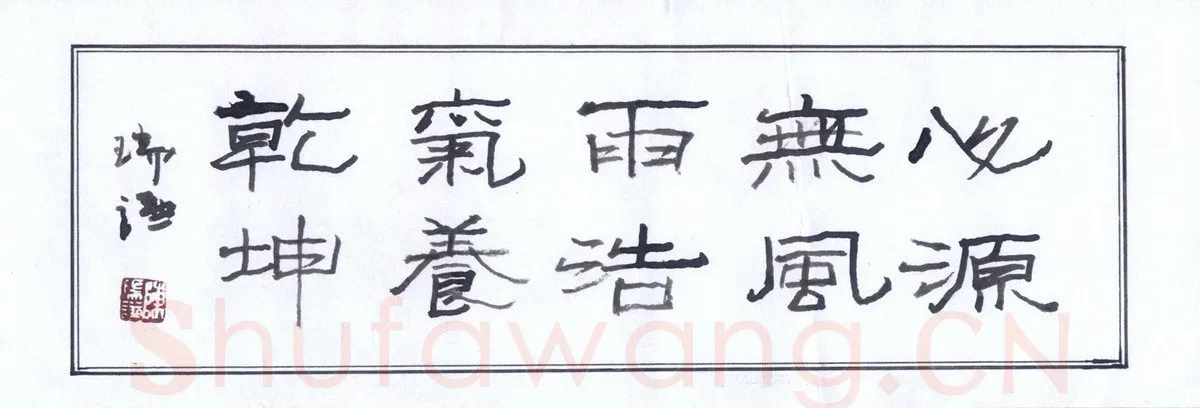 心源
無風
雨浩
氣養
乾坤
瑞謙
Shufawang.CN